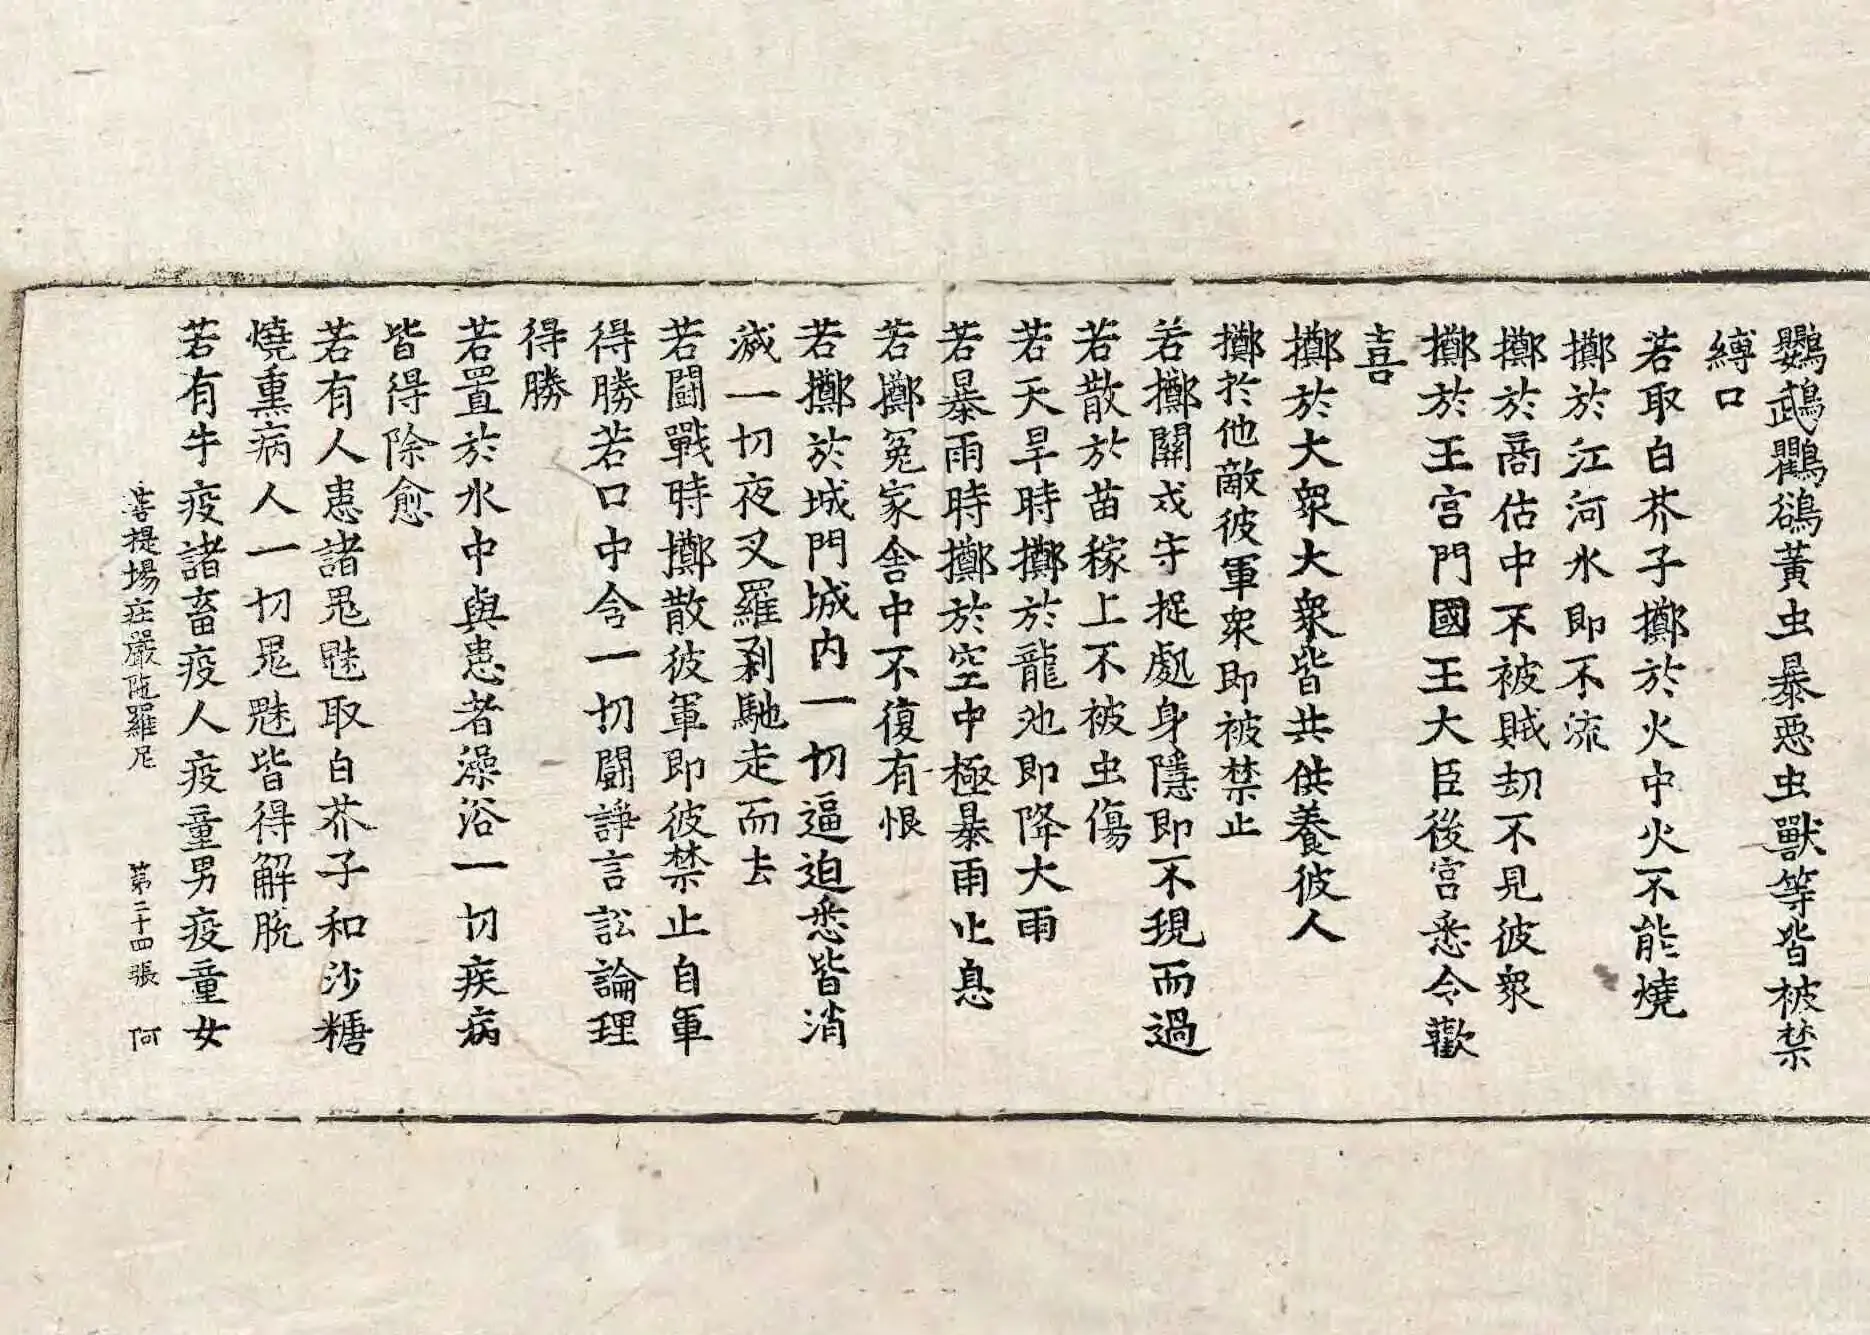 鸚鵡鸜鵒黃虫暴惡虫獸等皆被禁
縛口
若取白芥子擲於火中火不能燒
擲於江河水即不流
擲於商估中不被賊劫不見彼衆
擲於王宮門國王大臣後宮悉令歡
喜
擲於大衆大衆皆共供養彼人
擲於他敵彼軍衆即被禁止
若擲關戍守捉處身隱即不現而過
若散於苗稼上不被虫傷
若天旱時擲於龍池即降大雨
若暴雨時擲於空中極暴雨止息
若擲冤家舍中不復有恨
若擲於城門城內一切逼迫悉皆消
滅一切夜叉羅剎馳走而去
若鬪戰時擲散彼軍即彼禁止自軍
得勝若口中含一切鬪諍言訟論理
得勝
若置於水中與患者澡浴一切疾病
皆得除愈
若有人患諸鬼魅取白芥子和沙糖
燒熏病人一切鬼魅皆得解脫
若有牛疫諸畜疫人疫童男疫童女
菩提場莊嚴陁羅尼 第二十四張 阿